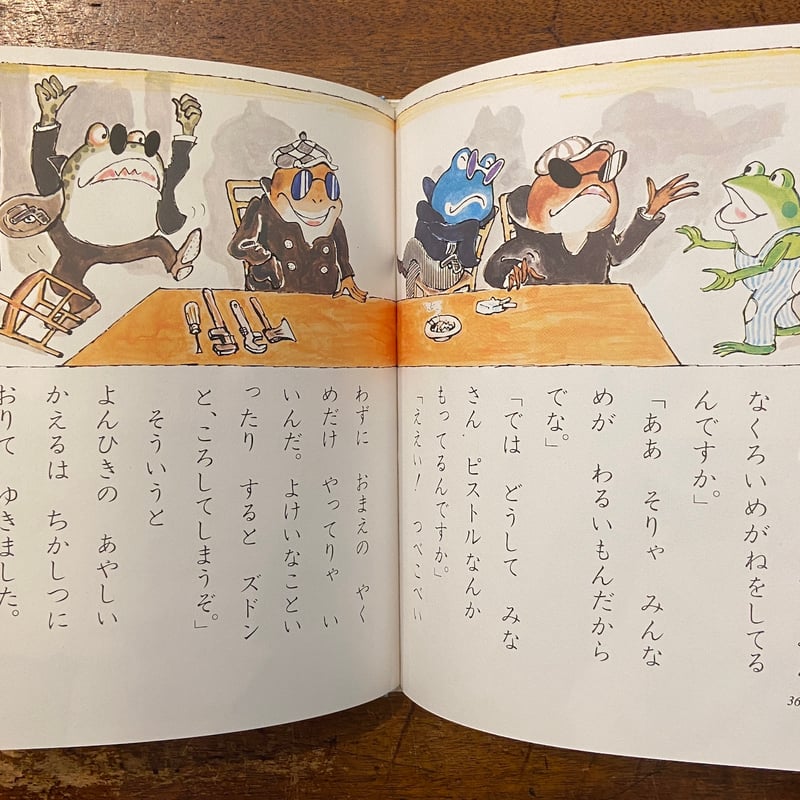 なくろいめがねをしてる
んですか。」
「ああ　そりゃ　みんな
めが　わるいもんだから
でな。」
「では　どうして　みな
さん　ピストルなんか
もってるんですか。」
「ええい！　つべこべい
わずに　おまえの　やく
めだけ　やってりゃ　い
いんだ。よけいなことい
ったり　すると　ズドン
と、ころしてしまうぞ。」
そういうと
よんひきの　あやしい
かえるは　ちかしつに
おりて　ゆきました。
36